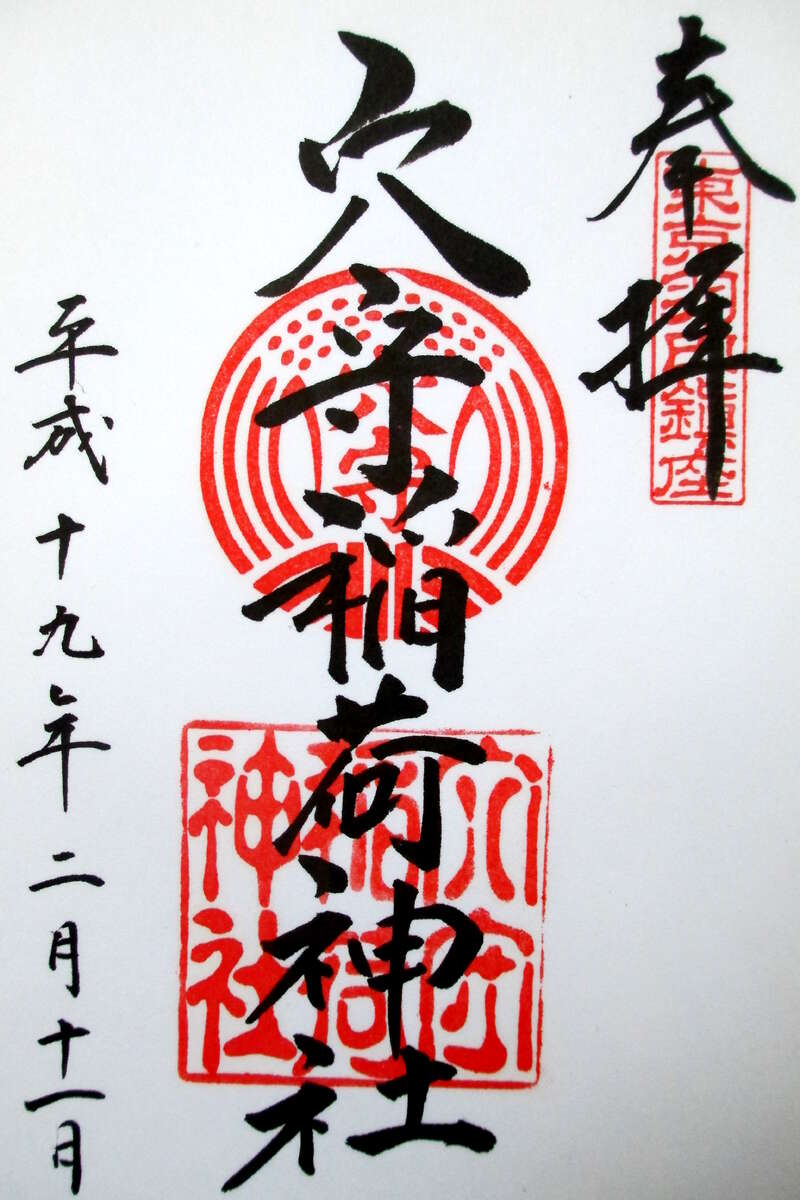 奉拝
東京羽田鎮座
穴守稲荷神社
穴守
稲荷
神社
平成十九年二月十一日